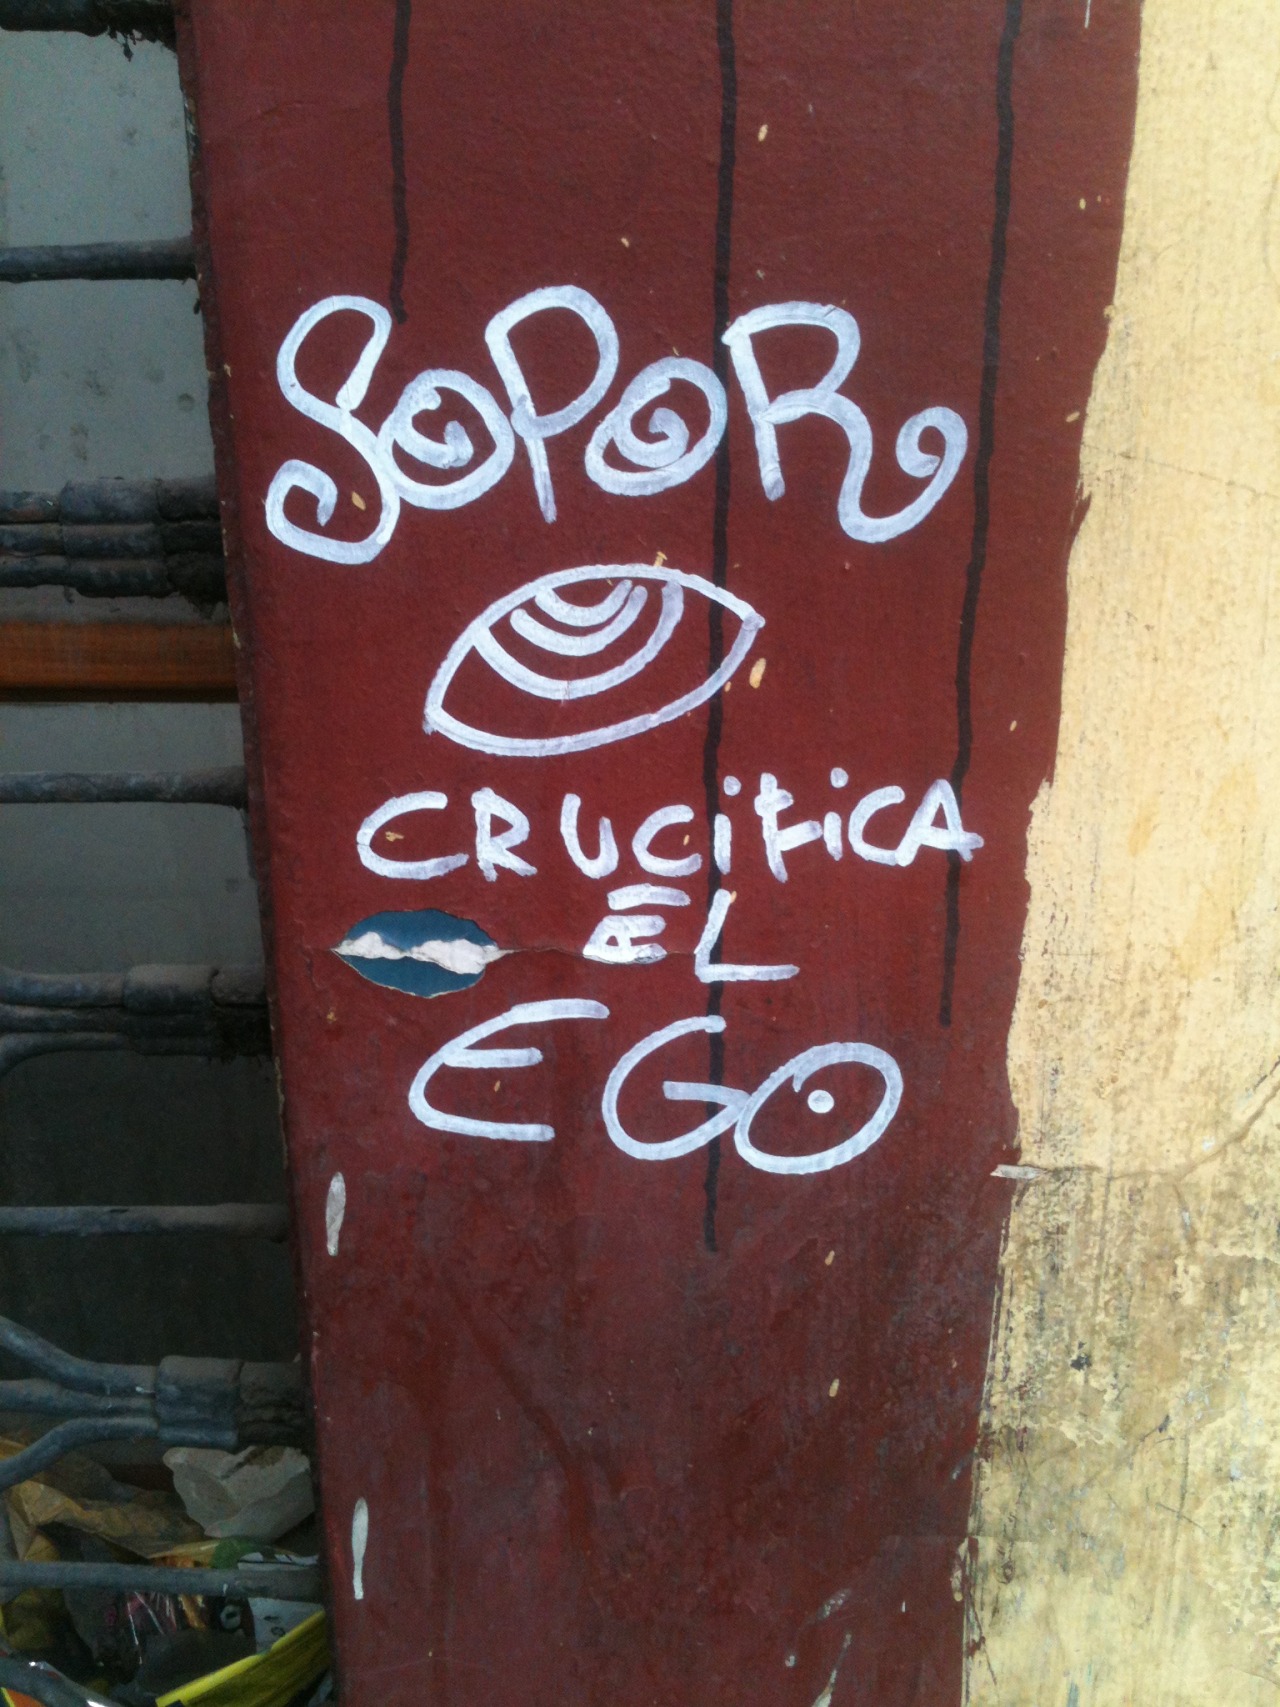 SOPOR
CRUCiFiCA
EL
EGO